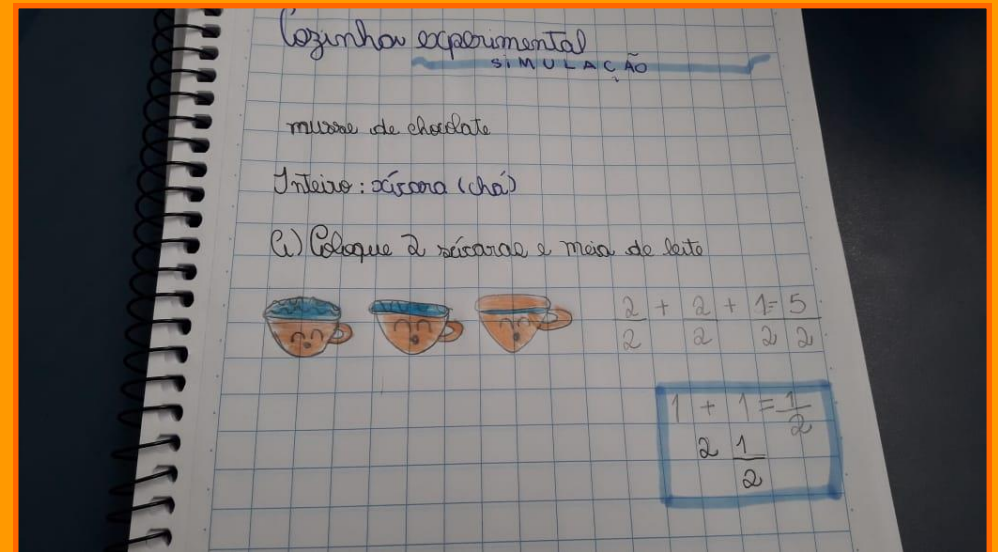 Cozinha experimental
SIMULAÇÃO
musse de chocolate
Inteiro: xícara (chá)
a) Coloque 2 xícaras e meia de leite
2/2 + 2/2 + 1/2 = 5/2
1 + 1 = 1/2
2 1/2